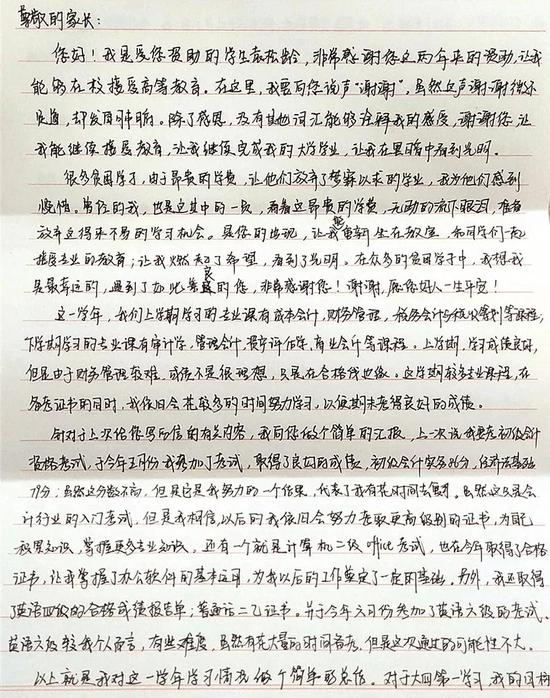 尊敬的家长：
您好！我是受您资助的学生袁松龄，非常感谢您这两年来的资助，让我
能够在校接受高等教育。在这里，我要向您说声"谢谢"，虽然这声谢谢微不
足道，却发自肺腑。除了感恩，没有其他词汇能够诠解我的感度，谢谢您让
我能继续接受教育，让我继续完成我的大学学业，让我在黑暗中看到光明。
很多贫困学子，由于昂贵的学费，让他们放弃了梦寐以求的学业，我为他们感到
惋惜。曾经的我，也是这其中的一员，看着这昂贵的学费，无助的流下眼泪，准备
放弃这得来不易的学习机会。是您的出现，让我能重新坐在教室，和同学们一起
接受专业的教育；让我燃起了希望，看到了光明。在众多的贫困学子中，我想我
是最幸运的，遇到了如此善良的您，非常感谢您！谢谢，愿您好人一生平安！
这一学年，我们上学期学习的专业课有成本会计，财务管理，税务会计与税收筹划等课程，
下学期学习的专业课有审计学，管理会计，资产评估学，商业会计等课程。上学期，学习成绩良好，
但是由于财务管理较难，成绩不是很理想，只是在合格线也做。这学期较多专业课程，在
备考证书的同时，我依旧会花较多的时间努力学习，以便期末考得良好的成绩。
针对于上次给您写的信的有关内容，我向您做个简单的汇报，上一次说我要考初级会计
资格考试，于今年五月份我参加了考试，取得了良好的成绩，初级会计实务86分，经济法基础
79分；虽然这分数不高，但是它是我努力的一个结果，代表了我有花时间去复习。虽然这只是会
计行业的入门考试，但是我相信以后的我依旧会努力考取更高级别的证书，为自己
积累知识，掌握更多专业知识，还有一个就是计算机二级office考试，也在今年取得了合格
证书，让我掌握了办公软件的基本运用，为我以后的工作奠定了一定的基础。另外，我还取得
了英语四级的合格成绩报告单；普通话二乙证书。并于今年六月份参加了英语六级的考试，
英语六级较我个人而言，有些难度，虽然有花大量的时间备考，但是这次通过的可能性不大。
以上就是我对这一学年学习情况做个简单的总结。对于大四第一学习，我的目标